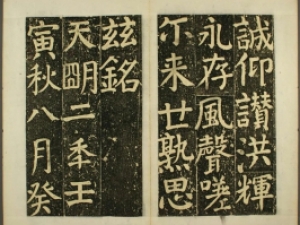 誠仰讚洪輝
永存風聲嗟
尒来世熟思
茲銘
天朙二秊壬
寅秋八月癸